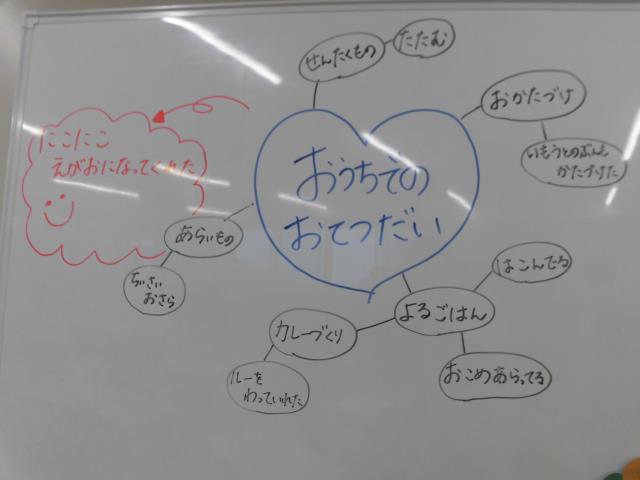 せんたくもの
たたむ
おかたづけ
いもうとのぶんも
かたづけた
にこにこ
えがおになってくれた
おうちでの
おてつだい
あらいもの
ちいさい
おさら
はこんでる
よるごはん
カレーづくり
おこめあらってる
ルーを
わっていれた